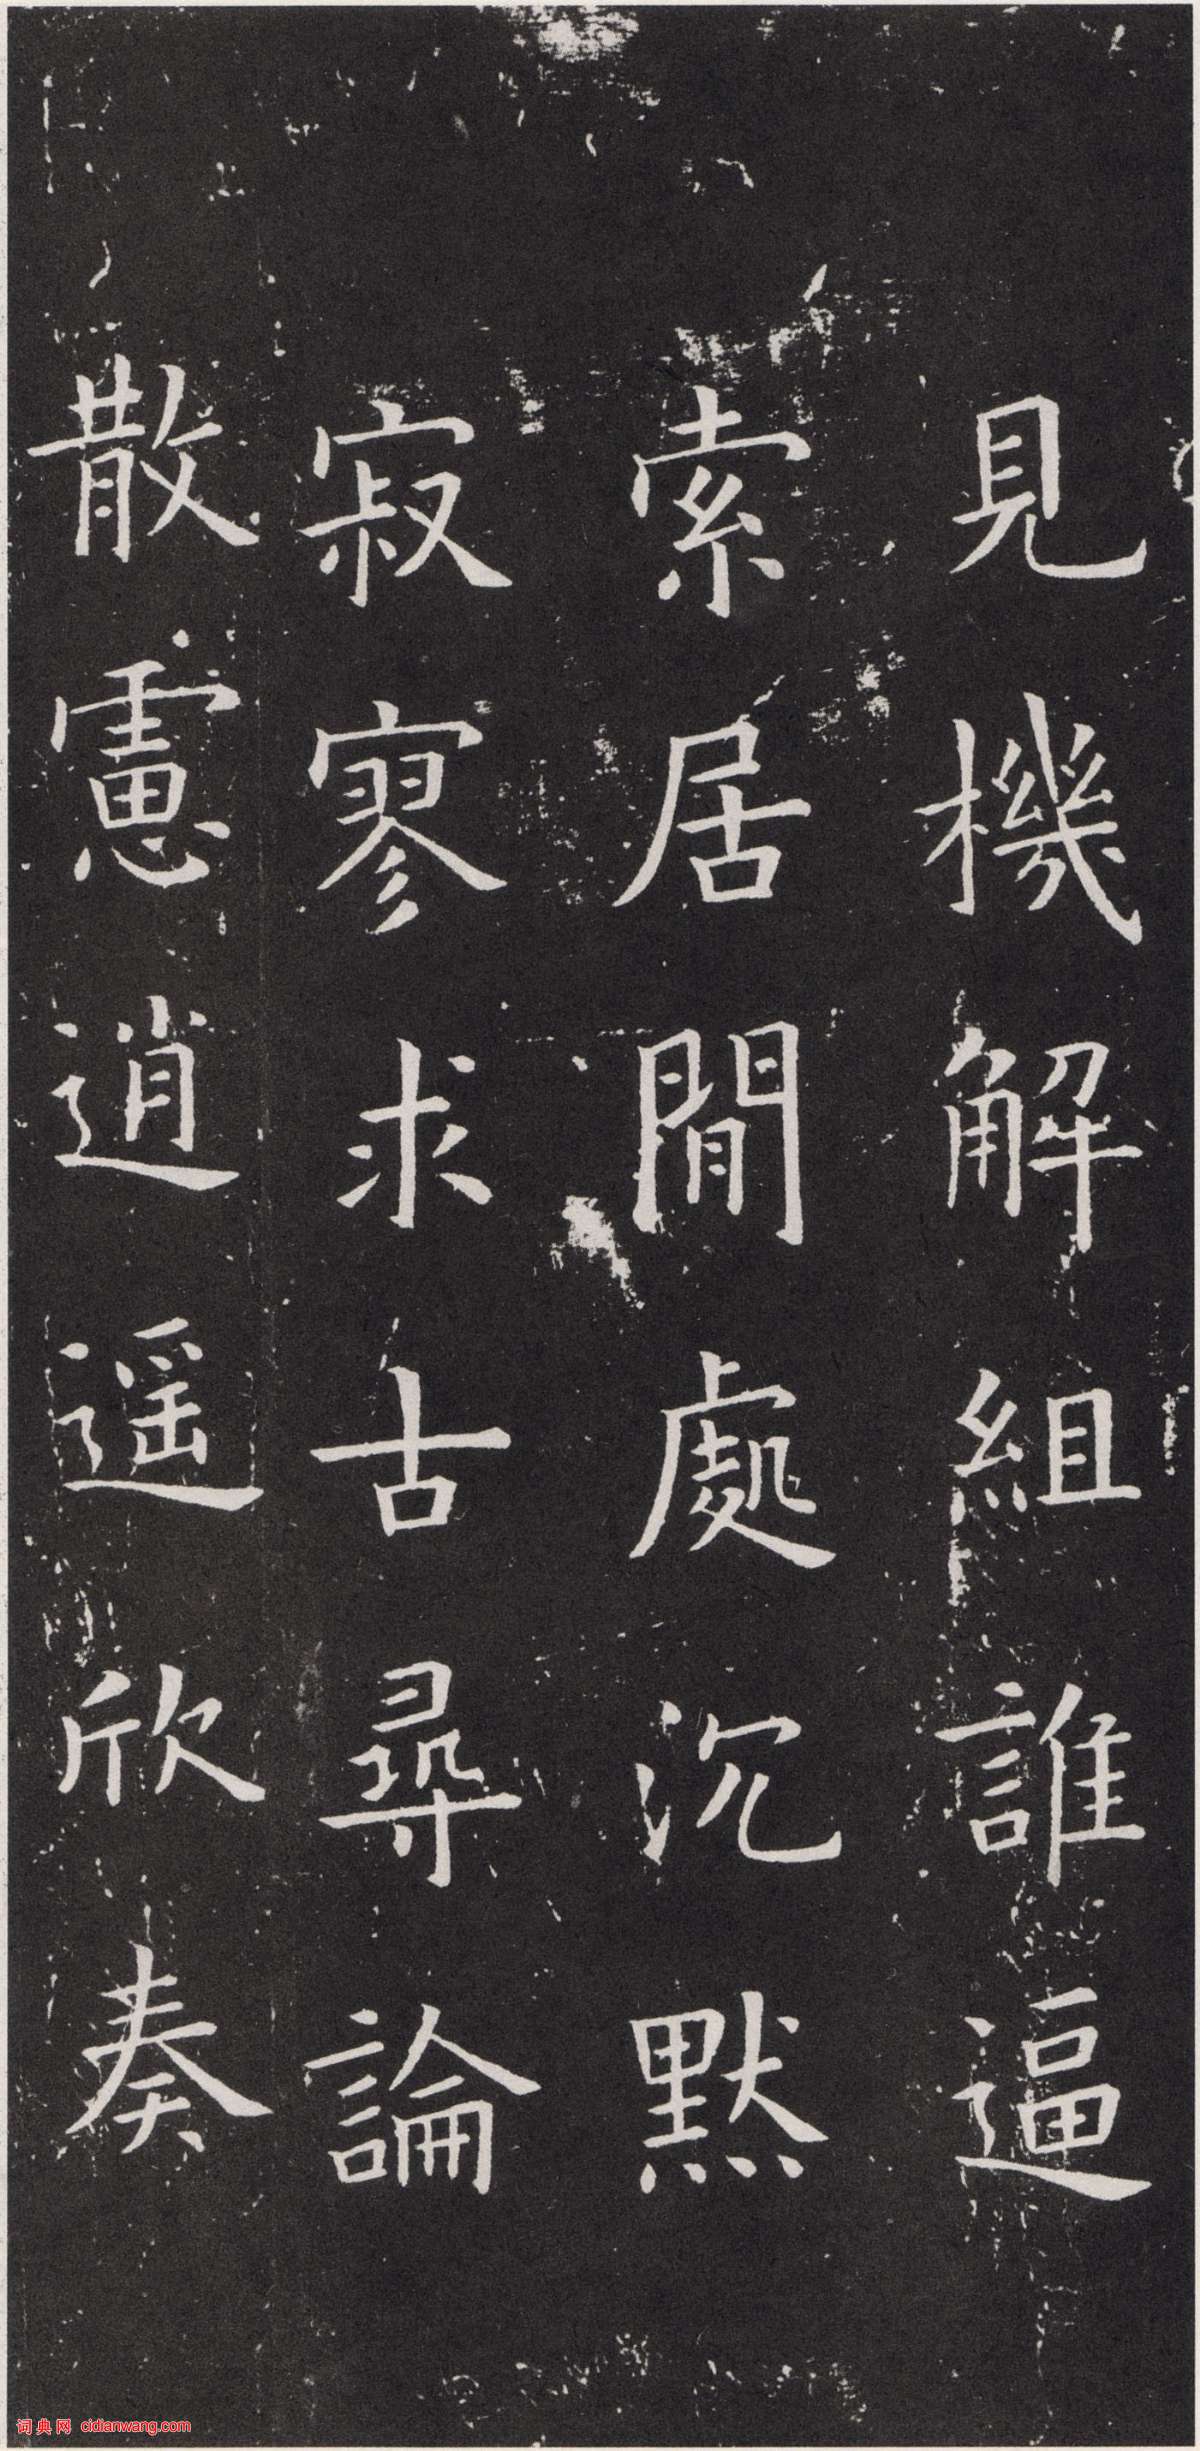 見機解組誰逼
索居閒處沉默
寂寥求古尋論
散慮逍遥欣奏
词典网 cidianwang.com